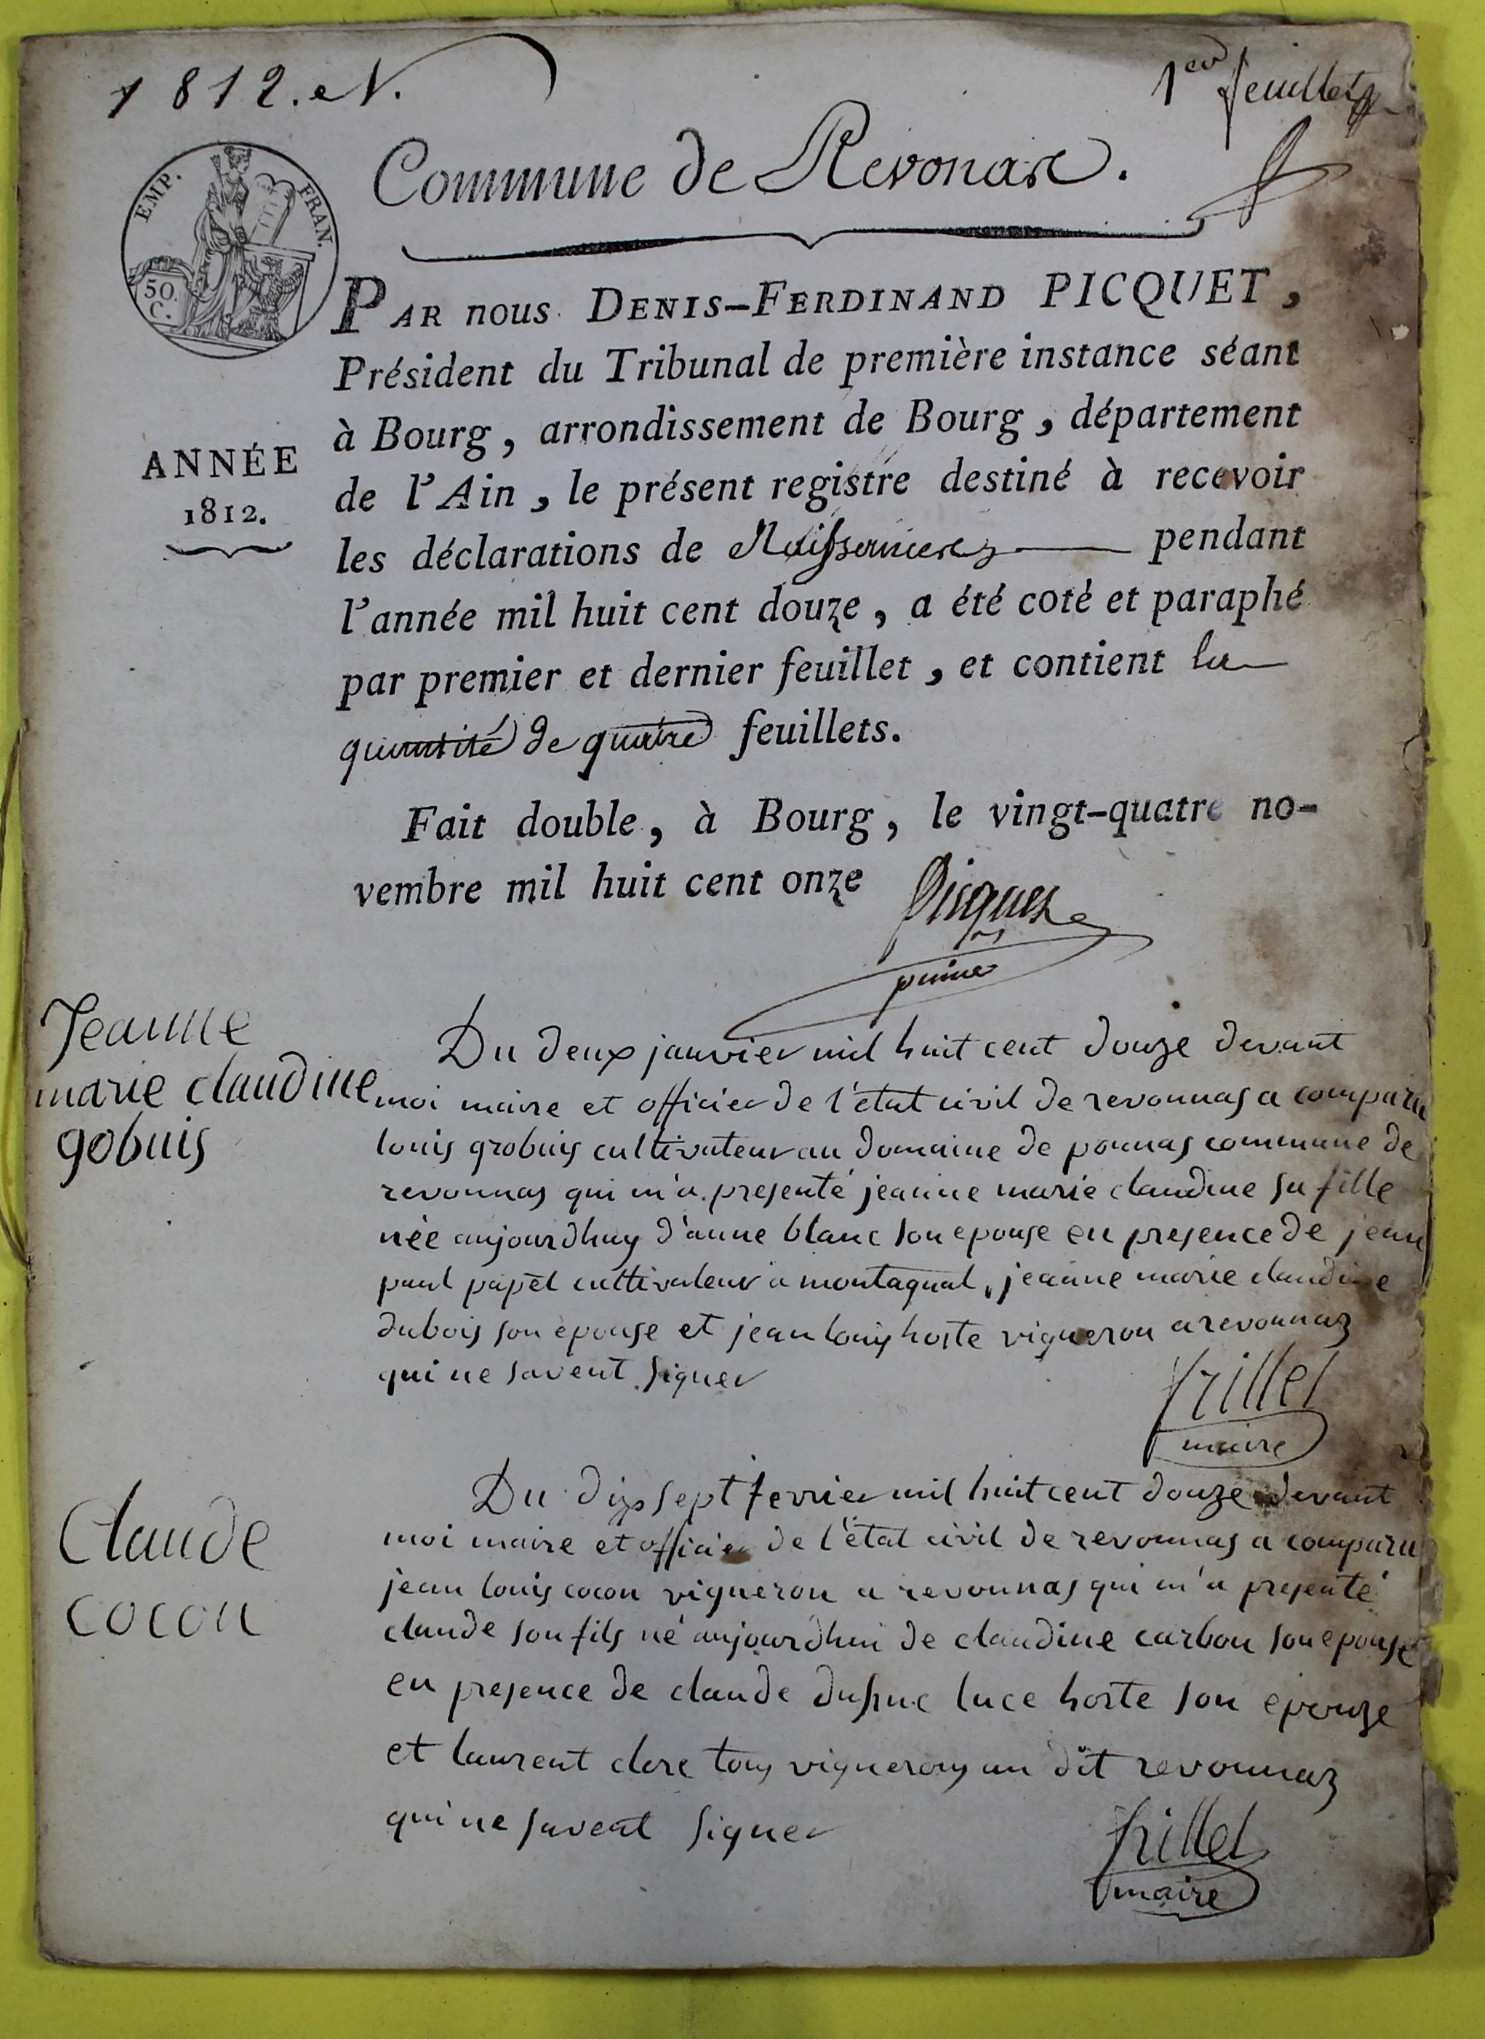 1812. N.
1er feuillet
Commune de Revonas.
EMP. FRAN.
50 C.
PAR nous DENIS-FERDINAND PICQUET,
Président du Tribunal de première instance séant
à Bourg, arrondissement de Bourg, département
de l'Ain, le présent registre destiné à recevoir
les déclarations de Naissances pendant
l'année mil huit cent douze, a été coté et paraphé
par premier et dernier feuillet, et contient la
quantité de quatre feuillets.
ANNÉE
1812.
Fait double, à Bourg, le vingt-quatre no-
vembre mil huit cent onze
Picquet
Jeanne
marie claudine
gobuis
Du deux janvier mil huit cent douze devant
moi maire et officier de l'état civil de revonnas a comparu
louis grobuis cultivateur au domaine de ponnas commune de
revonnas qui m'a presenté jeanne marie claudine sa fille
née aujourdhuy d'anne blanc son epouse en presence de jean
paul papet cultivateur a montagnat, jeanne marie claudine
dubois son epouse et jean louis hoste vigneron a revonnaz
qui ne savent signer
frillet
maire
Claude
cocon
Du dix sept fevrier mil huit cent douze devant
moi maire et officier de l'état civil de revonnas a comparu
jean louis cocon vigneron a revonnas qui m'a presenté
claude son fils né aujourdhui de claudine carbon son epouse
en presence de claude luce hoste son epouze
et laurent clere tous vignerons au dit revonnaz
qui ne savent signer
frillet
maire